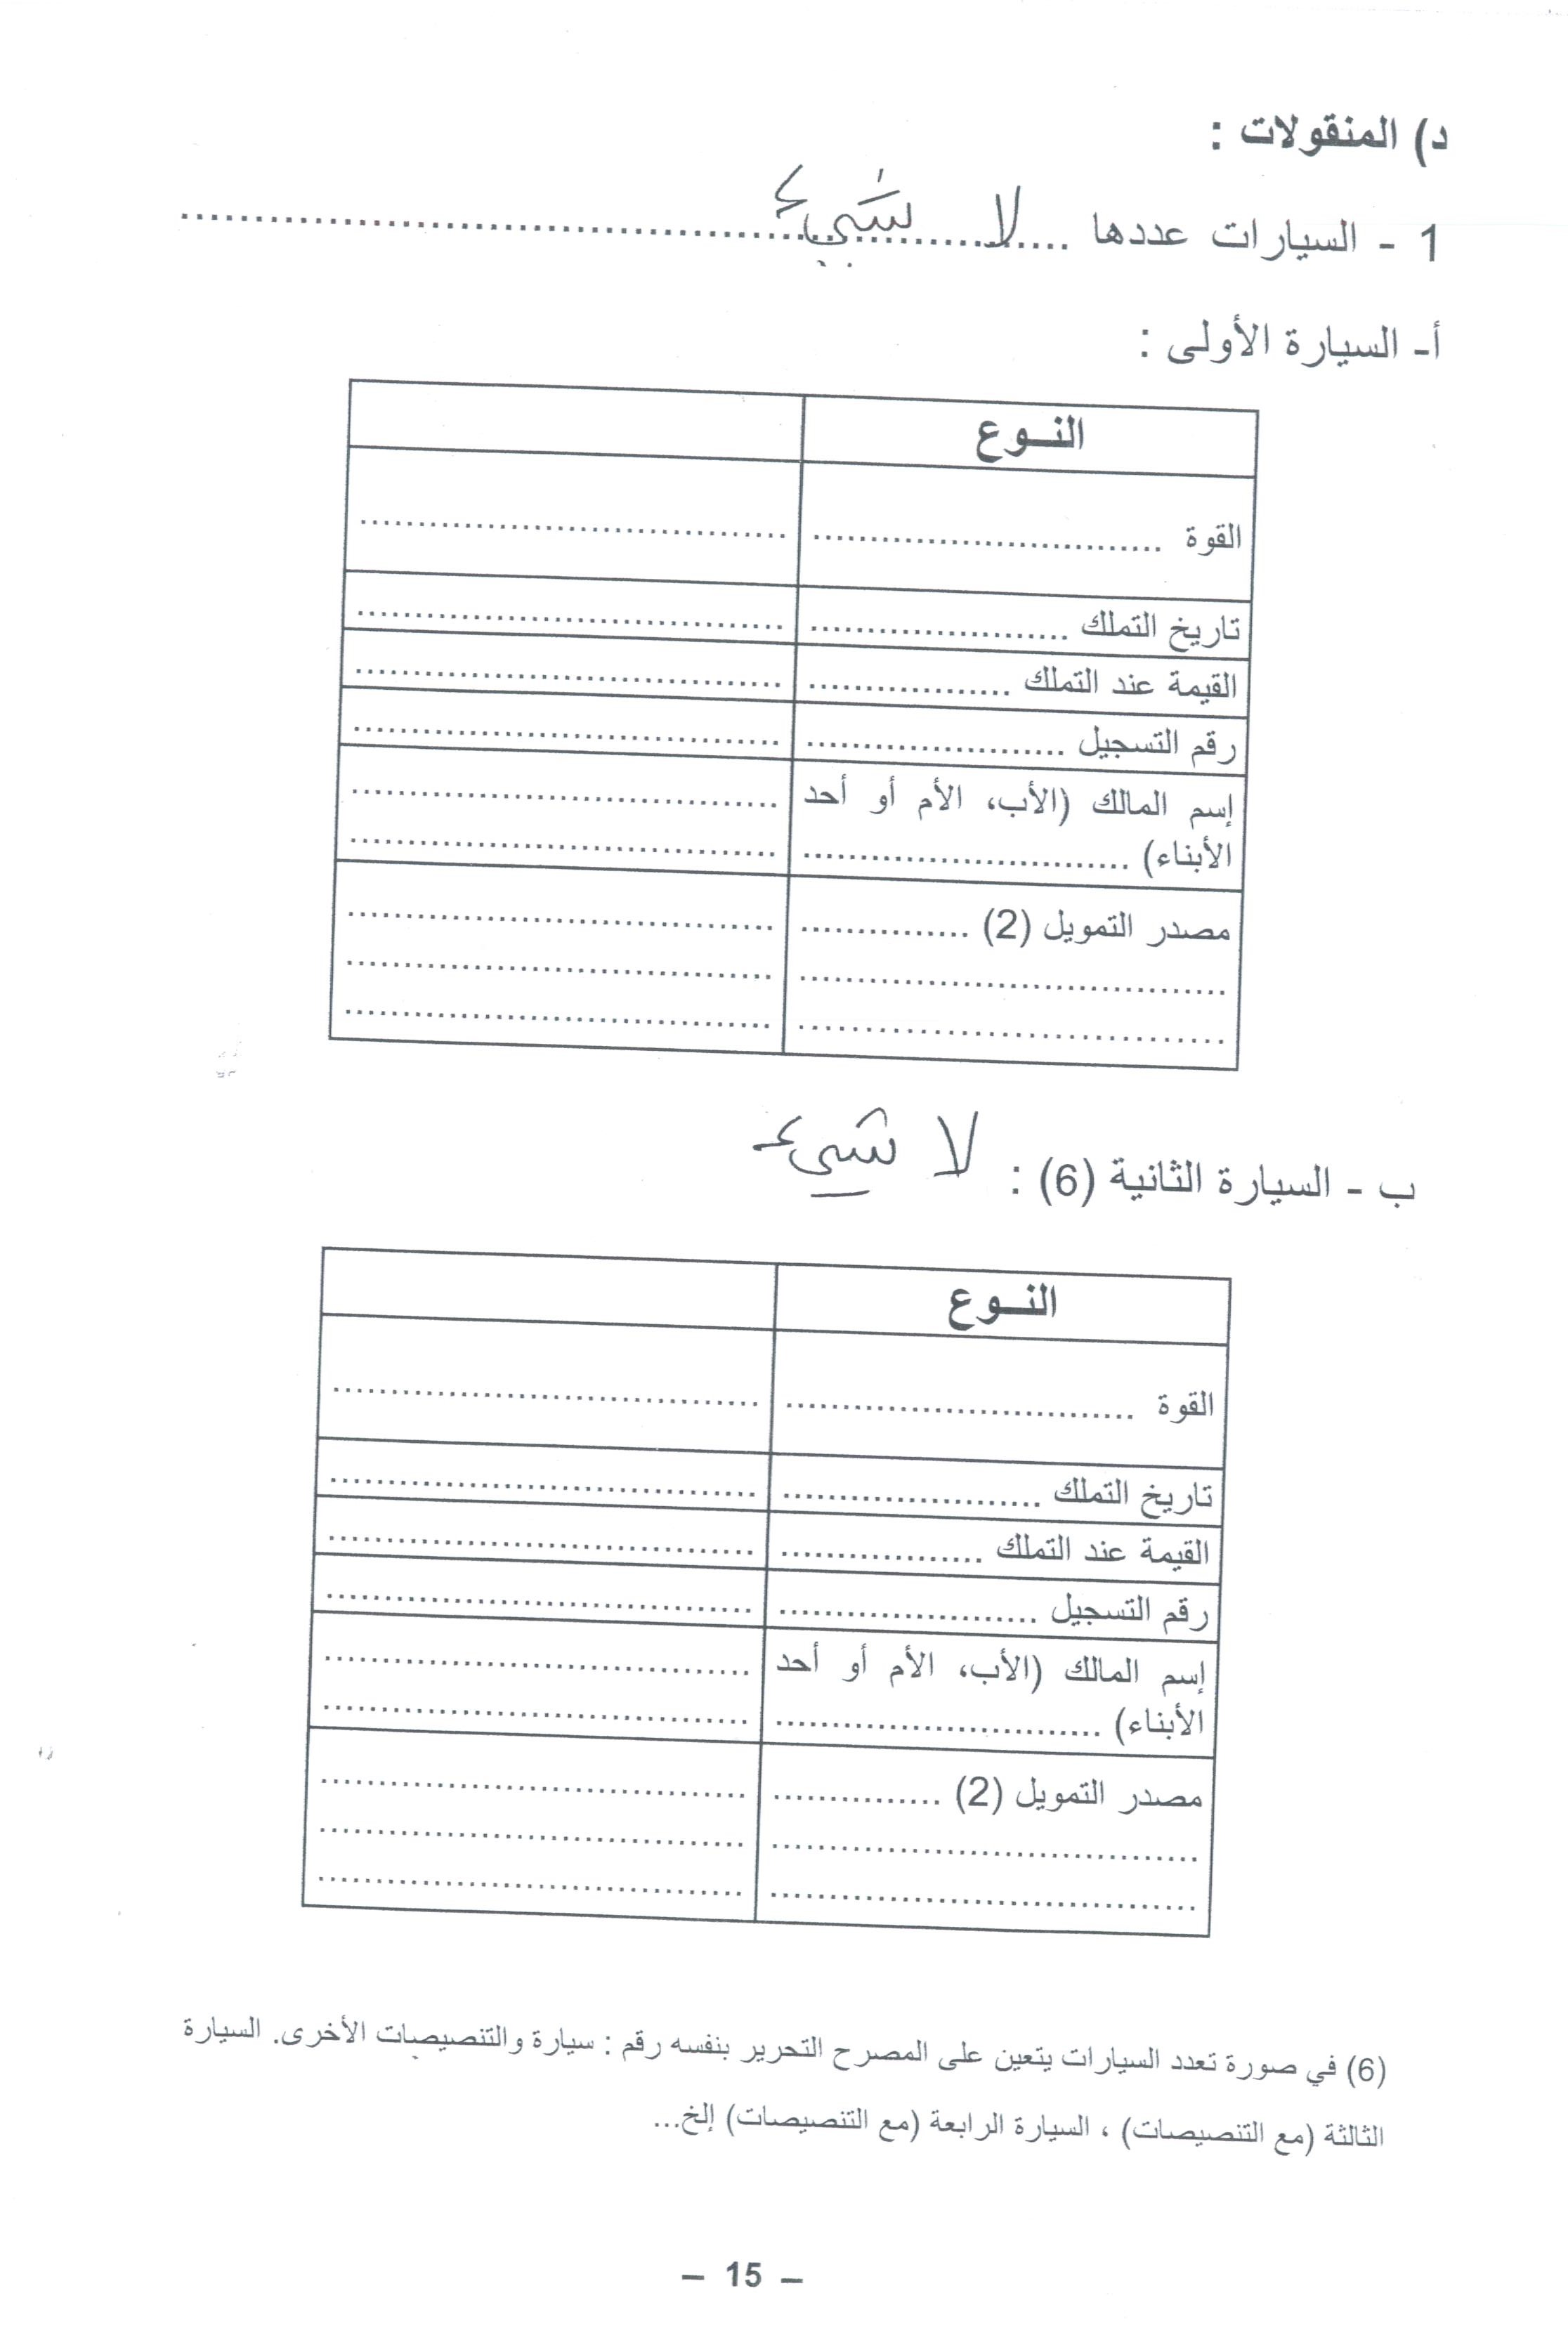 د) المنقولات :
1 - السيارات عددها ........ لا شيء ........
أ- السيارة الأولى :
النـوع
القوة ........
تاريخ التملك ........
القيمة عند التملك ........
رقم التسجيل ........
إسم المالك (الأب، الأم أو أحد
الأبناء) ........
مصدر التمويل (2) ........
ب - السيارة الثانية (6) : لا شيء
النـوع
القوة ........
تاريخ التملك ........
القيمة عند التملك ........
رقم التسجيل ........
إسم المالك (الأب، الأم أو أحد
الأبناء) ........
مصدر التمويل (2) ........
(6) في صورة تعدد السيارات يتعين على المصرح التحرير بنفسه رقم : سيارة والتنصيصات الأخرى. السيارة
الثالثة (مع التنصيصات) ، السيارة الرابعة (مع التنصيصات) إلخ...
– 15 –